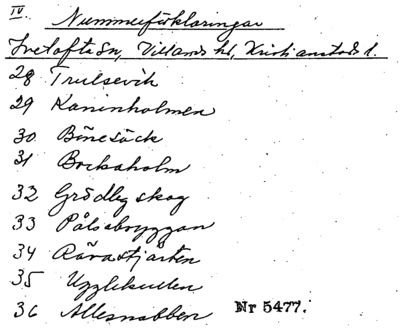 IV. Nummerförklaringar
Ivetofta Sn, Villands hd, Kristianstads l.
28 Trulsevik
29 Kaninholmen
30 Bönesäck
31 Bockaholm
32 Grödby skog
33 Pålsabryggan
34 Rävastjärten
35 Ugglekullen
36 Allesnabben Nr 5477.